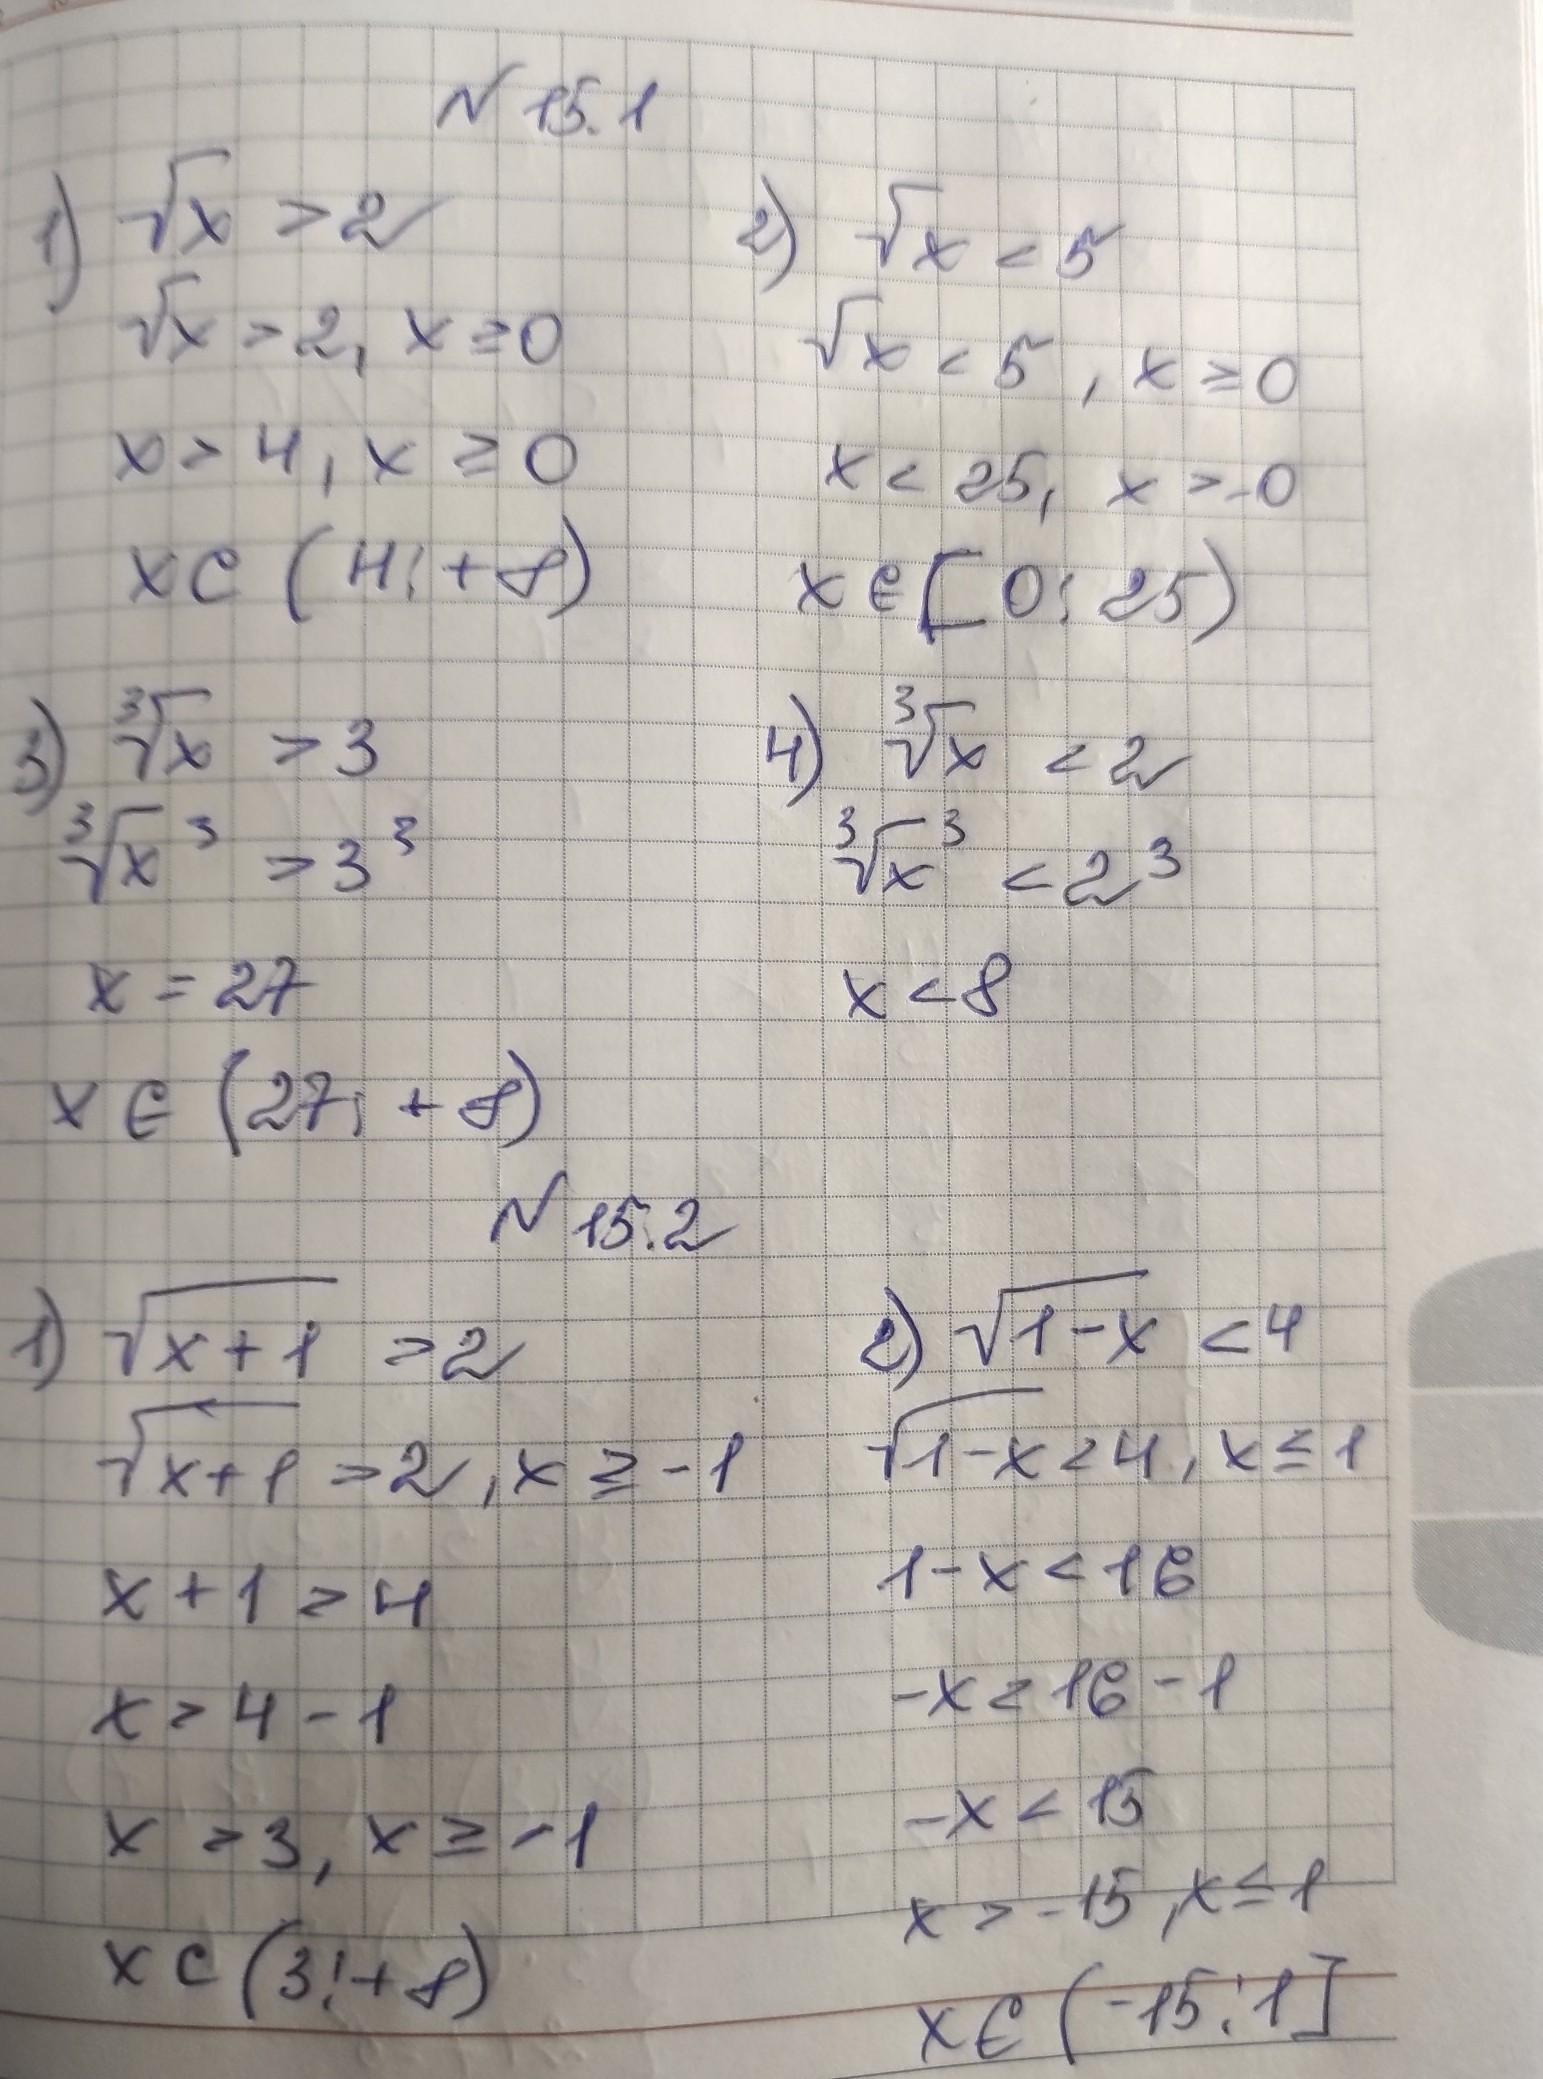 N 15.1
1) √x > 2
√x > 2, x ≥ 0
x > 4, x ≥ 0
x ∈ (4; +∞)
2) √x < 5
√x < 5, x ≥ 0
x < 25, x ≥ 0
x ∈ [0; 25)
3) ³√x > 3
³√x³ > 3³
x = 27
x ∈ (27; +∞)
4) ³√x < 2
³√x³ < 2³
x < 8
N 15.2
1) √x+1 > 2
√x+1 > 2, x ≥ -1
x + 1 > 4
x > 4 - 1
x > 3, x ≥ -1
x ∈ (3; +∞)
2) √1-x < 4
√1-x < 4, x ≤ 1
1 - x < 16
-x < 16 - 1
-x < 15
x > -15, x ≤ 1
x ∈ (-15; 1]